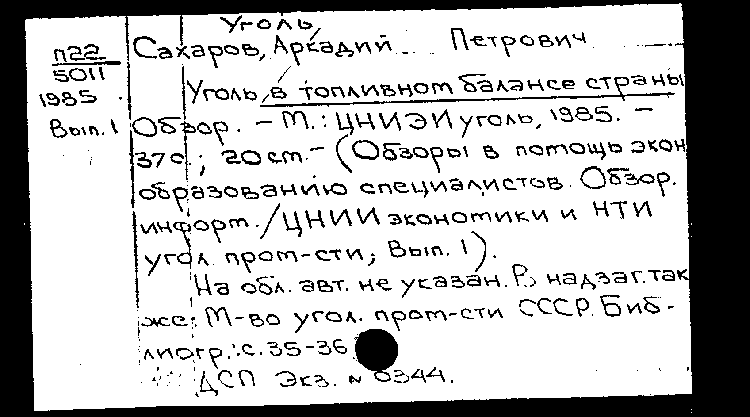 Уголь
п22 Сахаров, Аркадий Петрович
5011
1985 Уголь в топливном балансе страны
Вып. 1 Обзор. – М.: ЦНИЭИуголь, 1985. –
37с.; 20 см. – (Обзоры в помощь экон
образованию специалистов. Обзор.
информ. / ЦНИИ экономики и НТИ
угол. пром-сти; Вып. 1).
На обл. авт. не указан. В надзаг. так
же: М-во угол. пром-сти СССР. Биб-
лиогр.: с. 35-36.
ДСП Экз. № 0344.